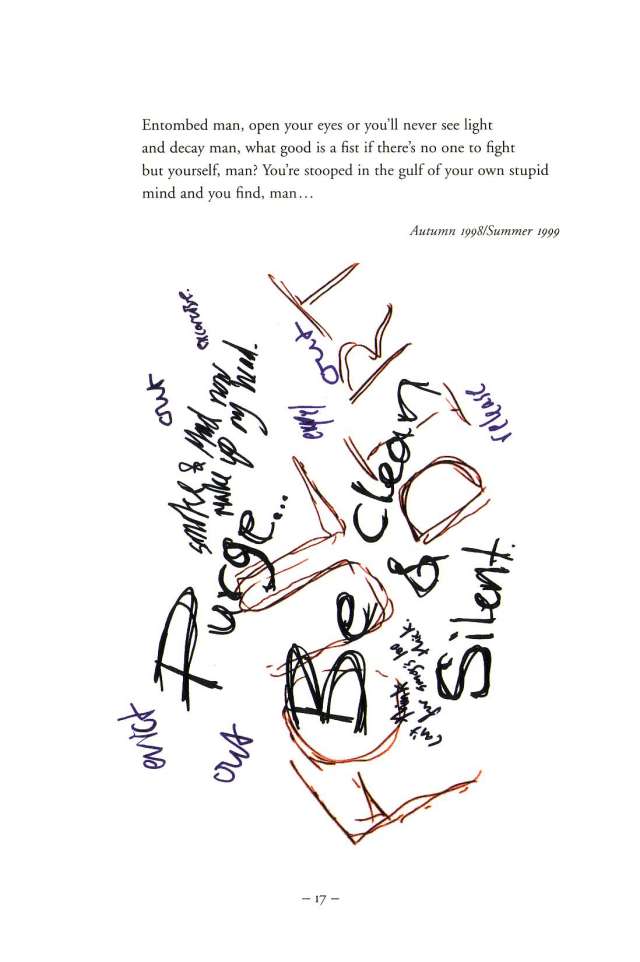 Entombed man, open your eyes or you'll never see light
and decay man, what good is a fist if there's no one to fight
but yourself, man? You're stooped in the gulf of your own stupid
mind and you find, man…
Autumn 1998/Summer 1999
evict
out
out
Purge...
smoke & mad now
make up my head.
expel
out
release
Be Clean
&
Silent.
– 17 –